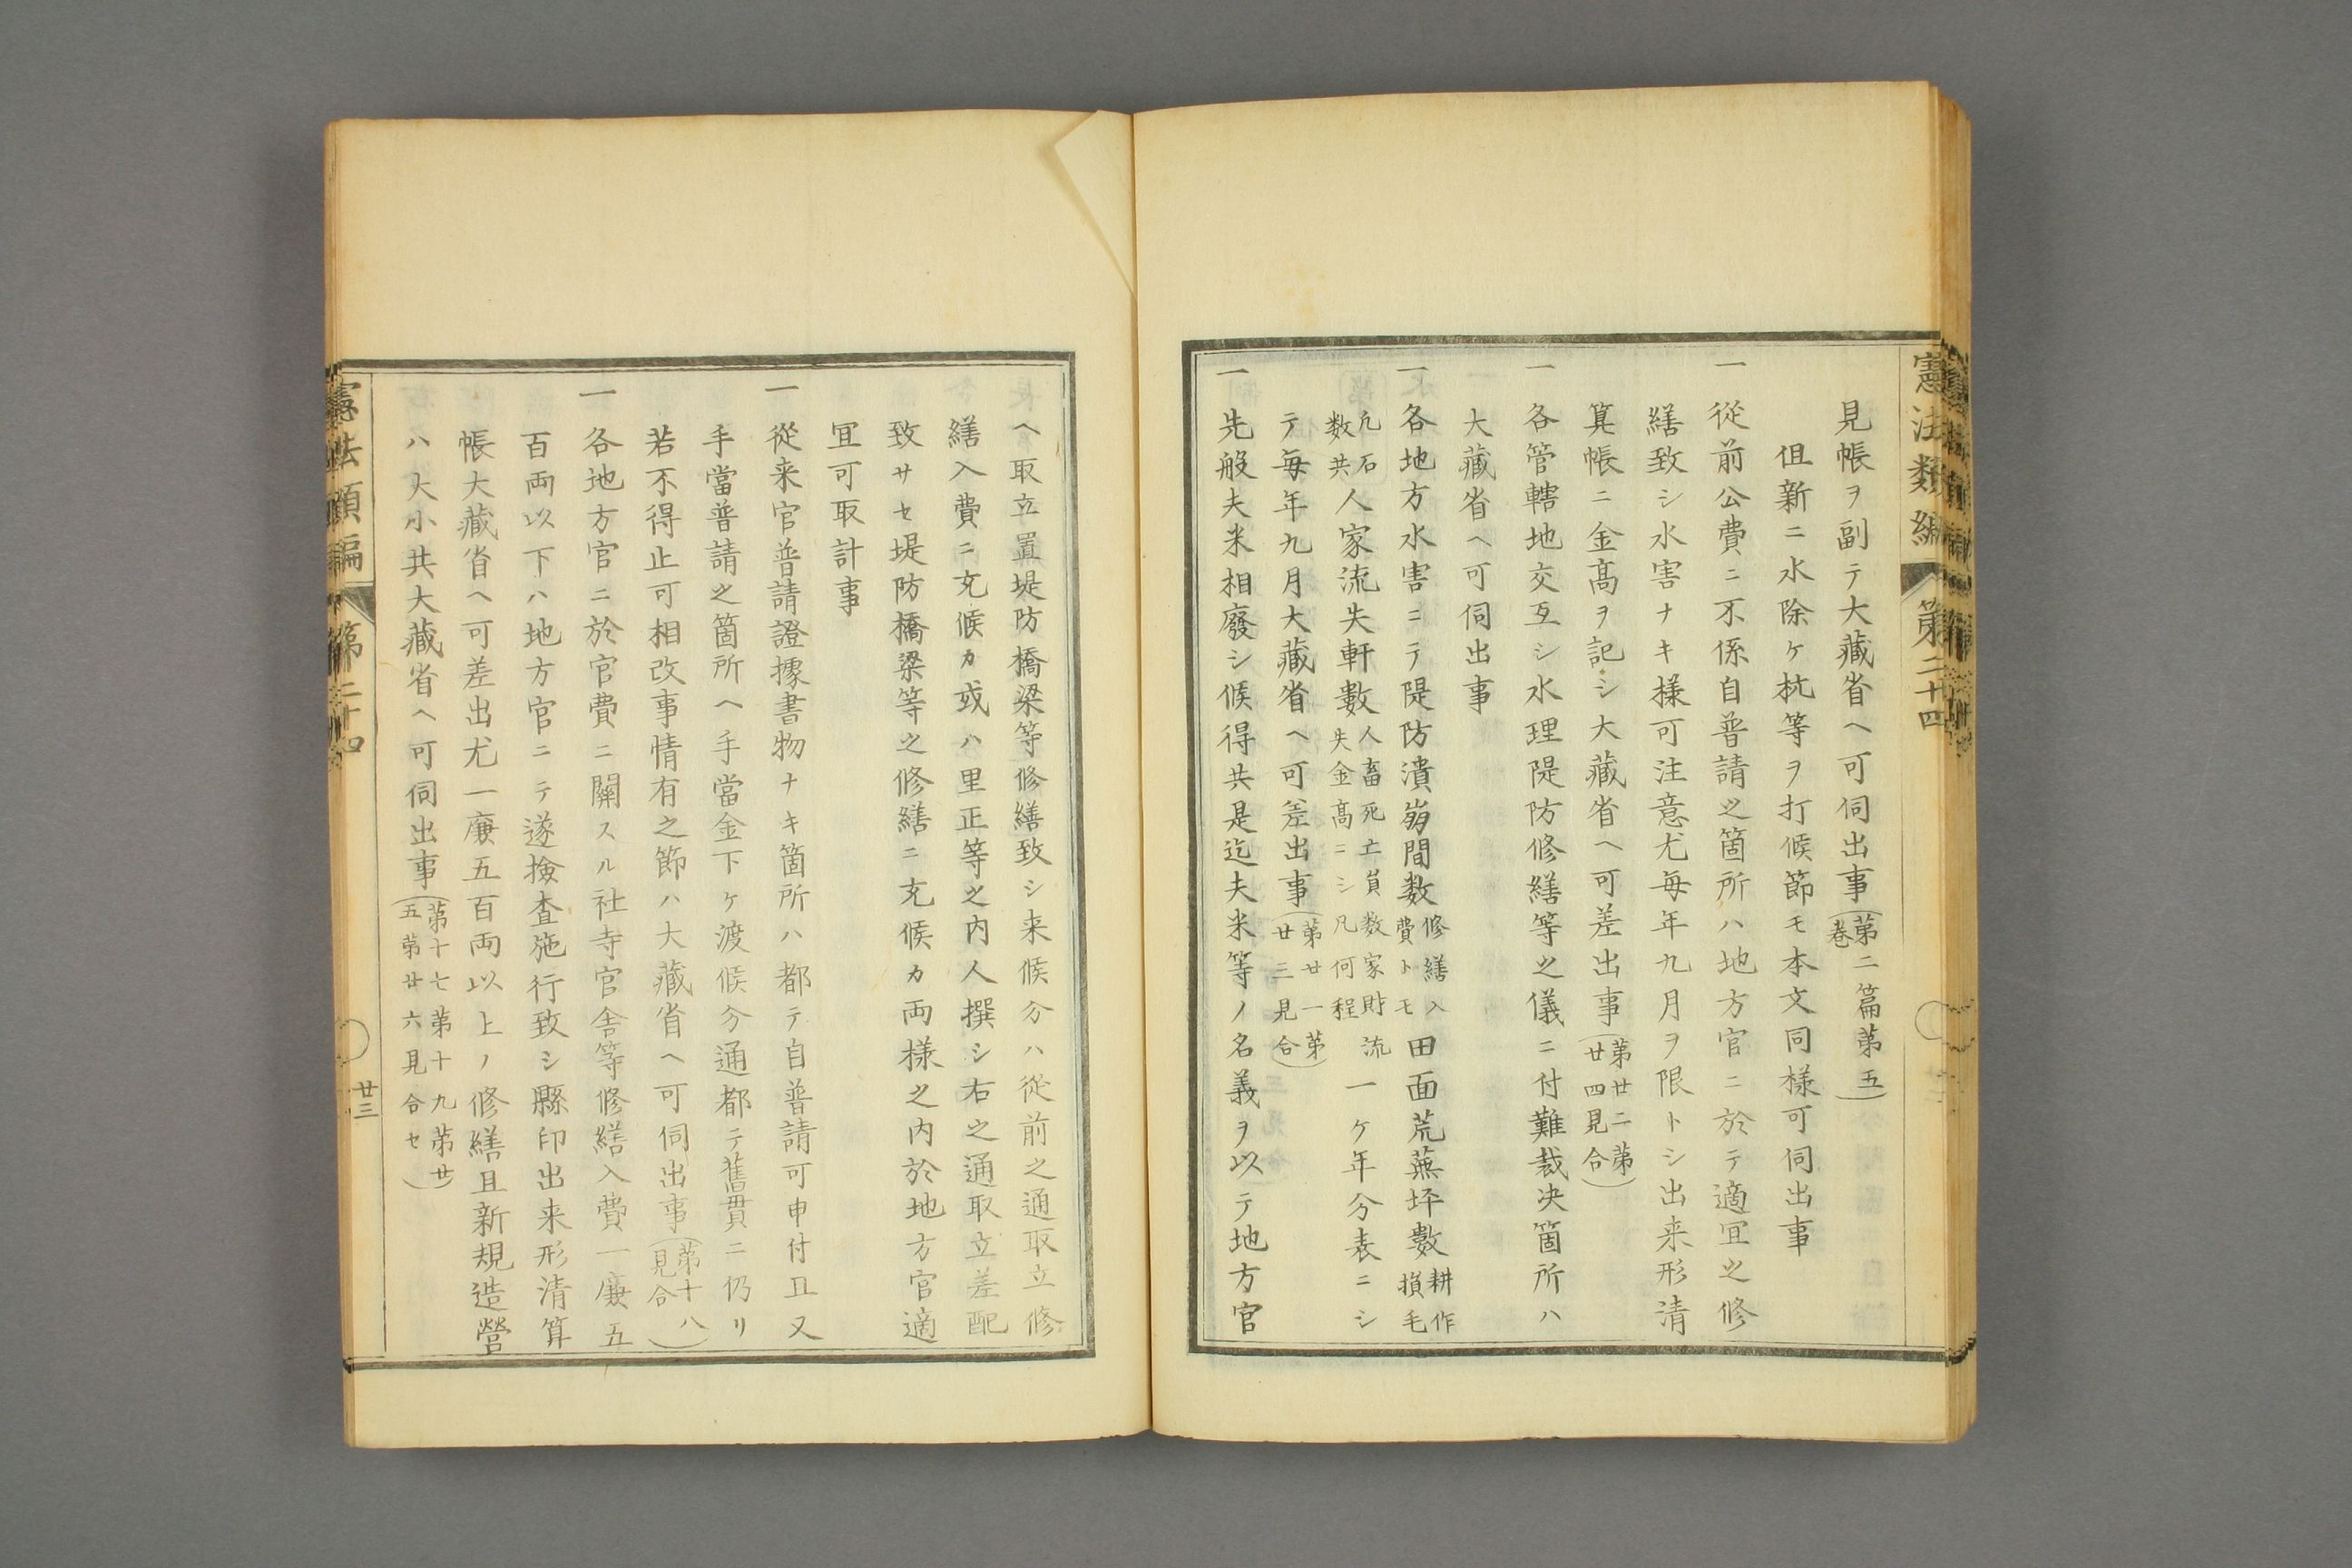 憲法類編 第二十四
見帳ヲ副テ大藏省ヘ可伺出事（第二篇第五巻）
但新ニ水除ケ杭等ヲ打候節モ本文同樣可伺出事
一從前公費ニ不係自普請之箇所ハ地方官ニ於テ適宜之修
繕致シ水害ナキ樣可注意尤毎年九月ヲ限トシ出来形清
算帳ニ金髙ヲ記シ大藏省ヘ可差出事（第廿二第廿四見合）
一各管轄地交互シ水理隄防修繕等之儀ニ付難裁决箇所ハ
大藏省ヘ可伺出事
一各地方水害ニテ隄防潰崩間数修繕入費トモ田面荒蕪坪數耕作損毛
凢石数共人家流失軒數人畜死亡員数家財流失金髙ニシ凡何程一ケ年分表ニシ
テ毎年九月大藏省ヘ可差出事（第廿一第廿三見合）
一先般夫米相廢シ候得共是迄夫米等ノ名義ヲ以テ地方官
ヘ取立置堤防橋梁等修繕致シ来候分ハ從前之通取立修
繕入費ニ充候カ或ハ里正等之内人撰シ右之通取立差配
致サセ堤防橋梁等之修繕ニ充候カ両樣之内於地方官適
冝可取計事
一從来官普請證據書物ナキ箇所ハ都テ自普請可申付且又
手當普請之箇所ヘ手當金下ケ渡候分通都テ舊貫ニ仍リ
若不得止可相改事情有之節ハ大藏省ヘ可伺出事（第十八見合）
一各地方官ニ於官費ニ關スル社寺官舎等修繕入費一廉五
百両以下ハ地方官ニテ遂撿査施行致シ縣印出来形清算
帳大藏省ヘ可差出尤一廉五百両以上ノ修繕且新規造營
ハ大小共大藏省ヘ可伺出事（第十七第十九第廿五第廿六見合セ）
憲法類編 第二十四 廿三